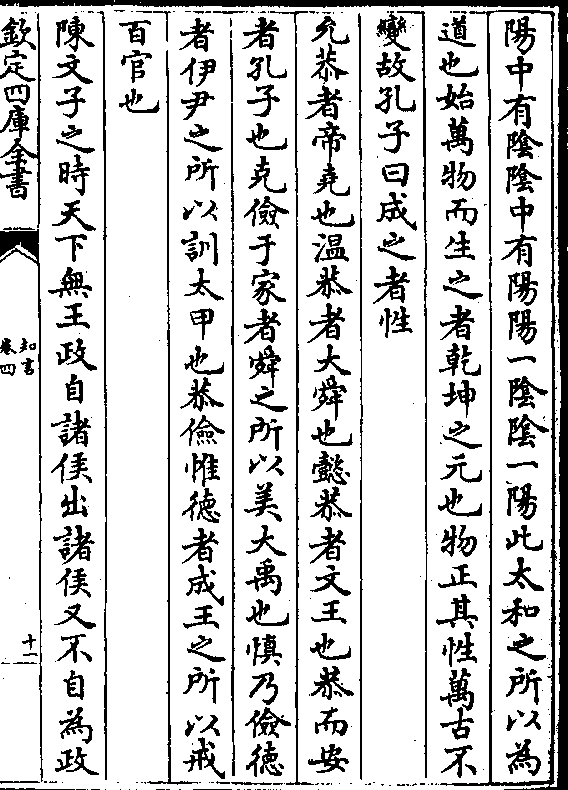 陽中有陰陰中有陽陽一陰陰一陽此太和之所以為
道也始萬物而生之者乾坤之元也物正其性萬古不
變故孔子曰成之者性
允恭者帝堯也温恭者大舜也懿恭者文王也恭而安
者孔子也克儉于家者舜之所以美大禹也慎乃儉徳
者伊尹之所以訓太甲也恭儉惟徳者成王之所以戒
百官也
陳文子之時天下無王政自諸侯出諸侯又不自為政
欽定四庫全書
知言
卷四
十一